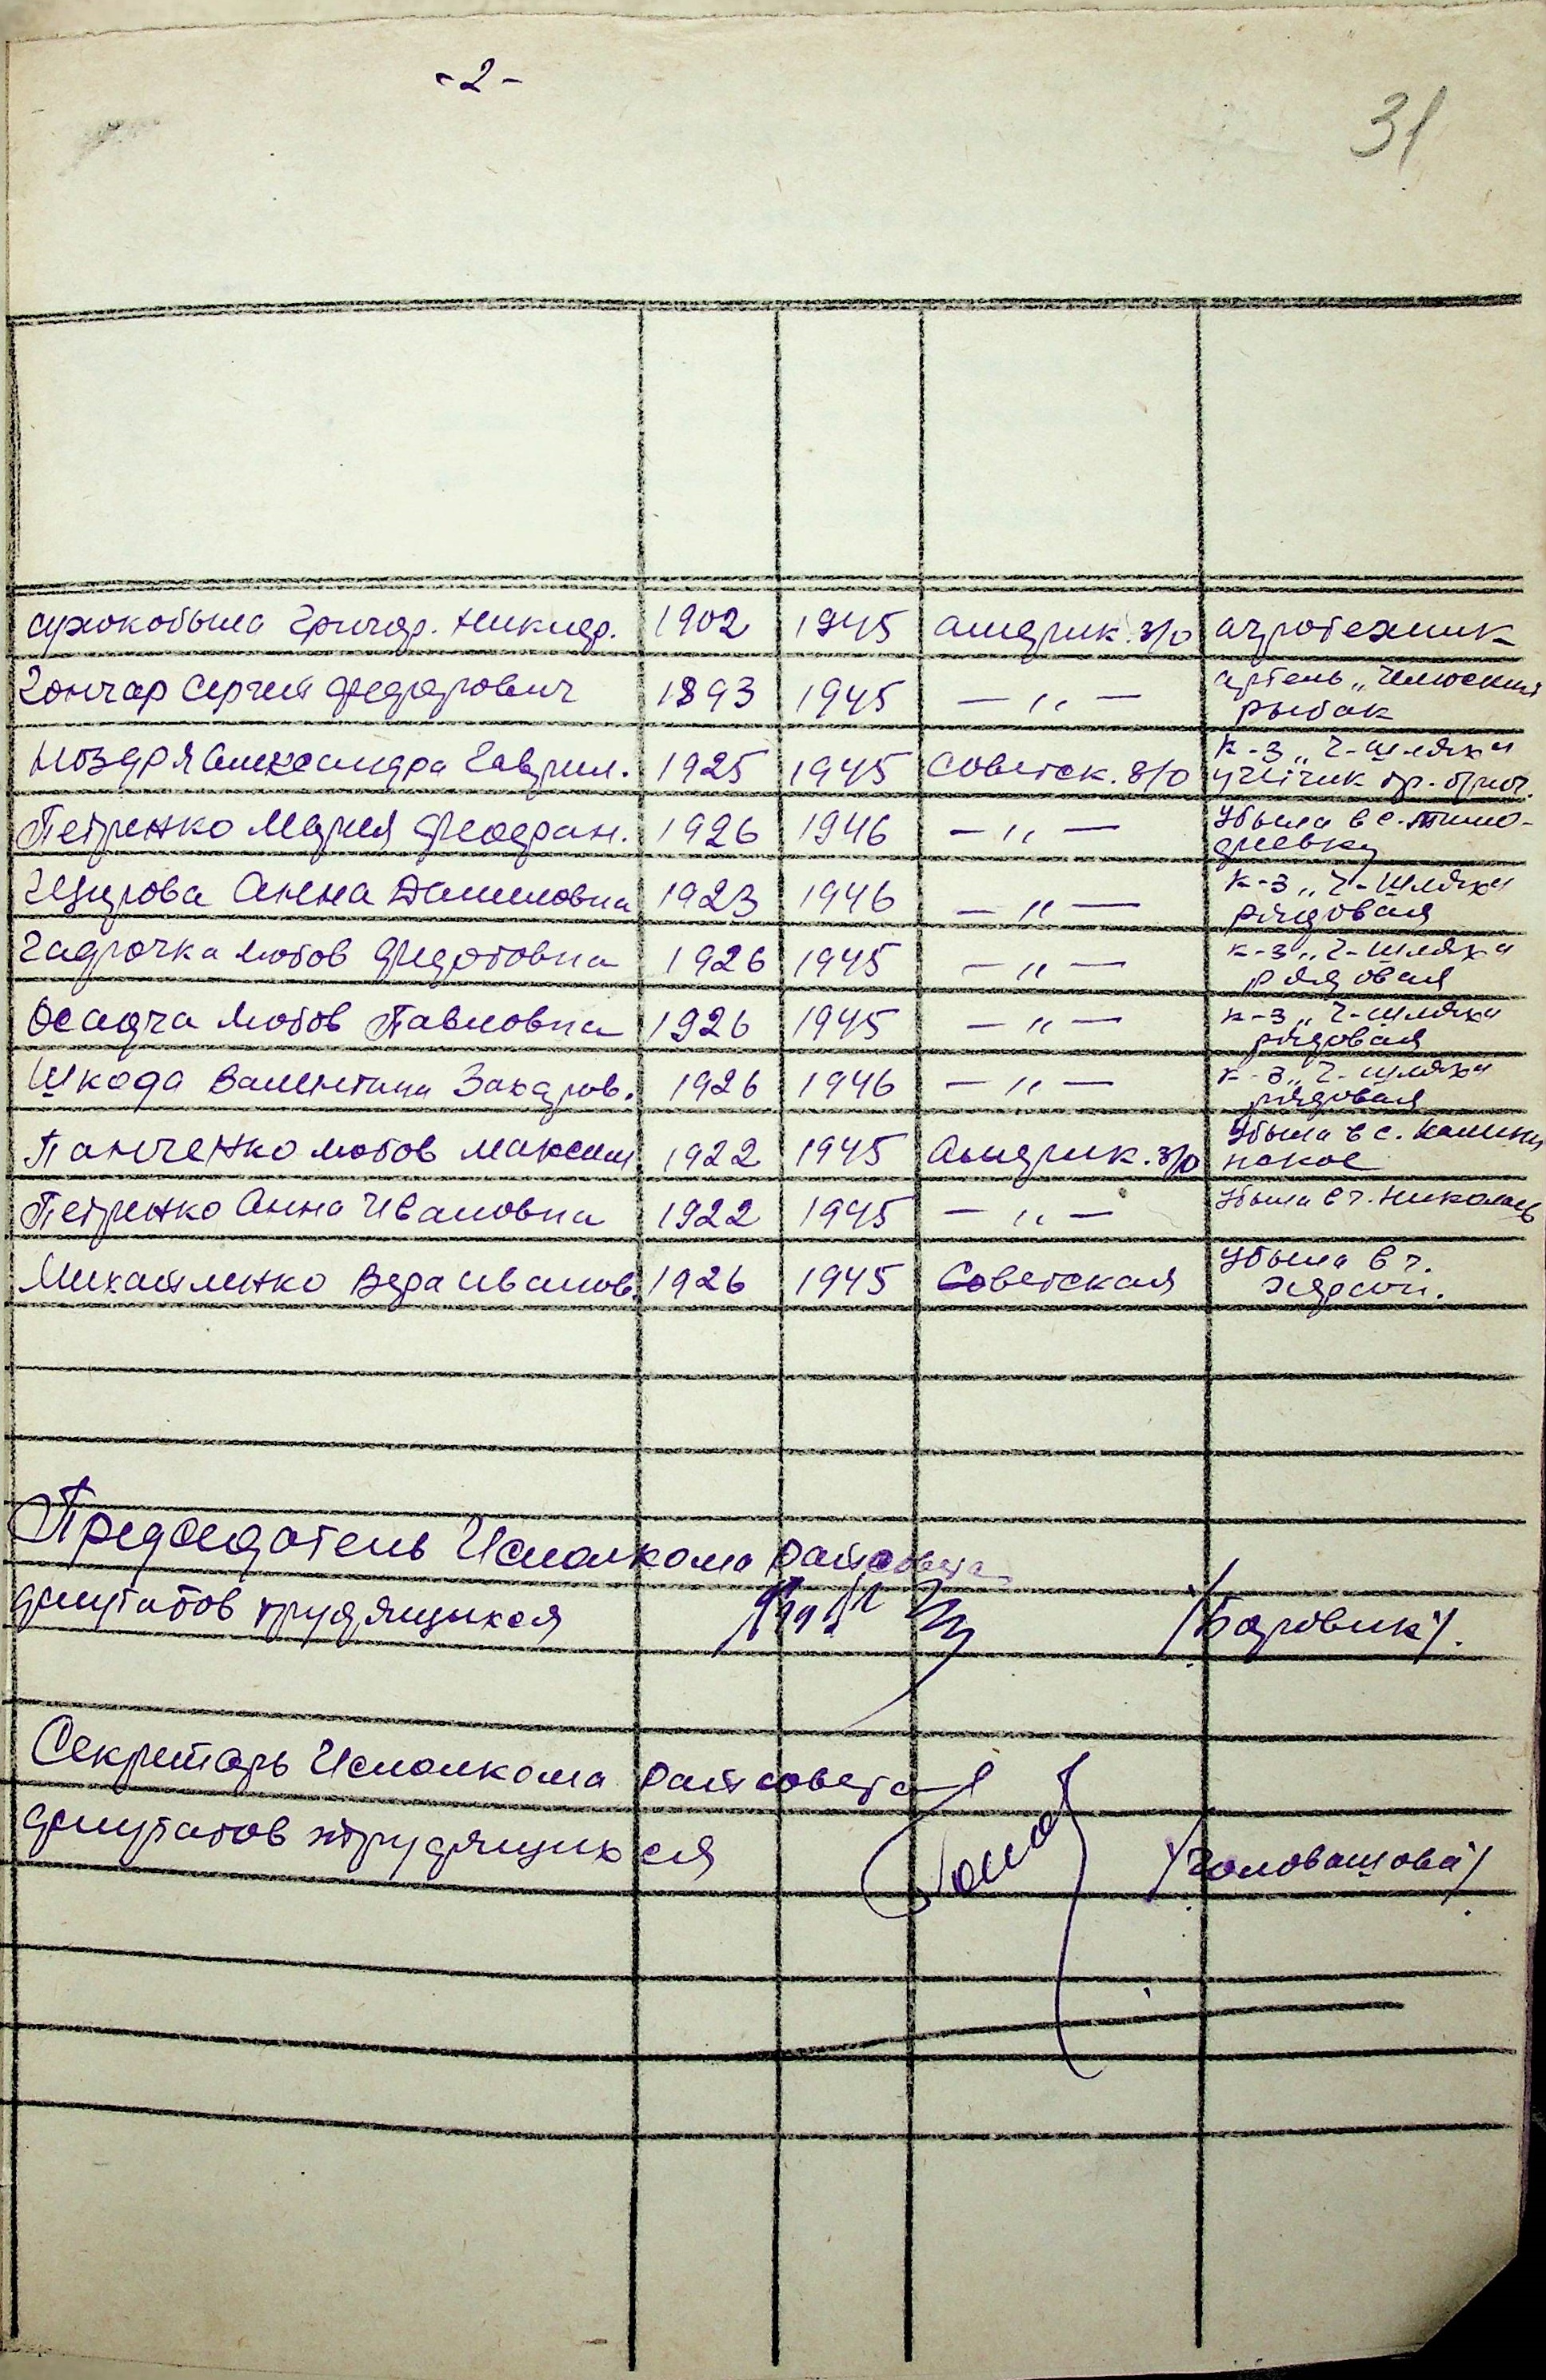 - 2 -
31
Сухокобыла Григор. Никиф. 1902 1945 Америк. з/о агротехник
Гончар Сергей Федорович 1893 1945 — „ — артель „Челюскин"
рыбак
Ноздря Александра Гаврил. 1925 1945 Советск. з/о к-з „Ч-Шляха"
учётчик тр. бриг.
Петренко Мария Феофан. 1926 1946 — „ — Убыла в с. Тимо-
феевку
Щурова Анна Даниловна 1923 1946 — „ — к-з „Ч-Шляха"
рядовая
Гадрочка Любов Федотовна 1926 1945 — „ — к-з „Ч-Шляха"
рядовая
Осадча Любов Павловна 1926 1945 — „ — к-з „Ч-Шляха"
рядовая
Шкода Валентина Захаров. 1926 1946 — „ — к-з „Ч-Шляха"
рядовая
Панченко Любов Максим 1922 1945 Америк. з/о Убыла в с. Калини
нское
Петренко Анна Ивановна 1922 1945 — „ — Убыла в г. Николаев
Михайленко Вера Иванов. 1926 1945 Советская Убыла в г.
Херсон.
Председатель Исполкома Райсовета
депутатов трудящихся /Боровик/.
Секретарь Исполкома Райсовета
депутатов трудящихся /Головашова/.